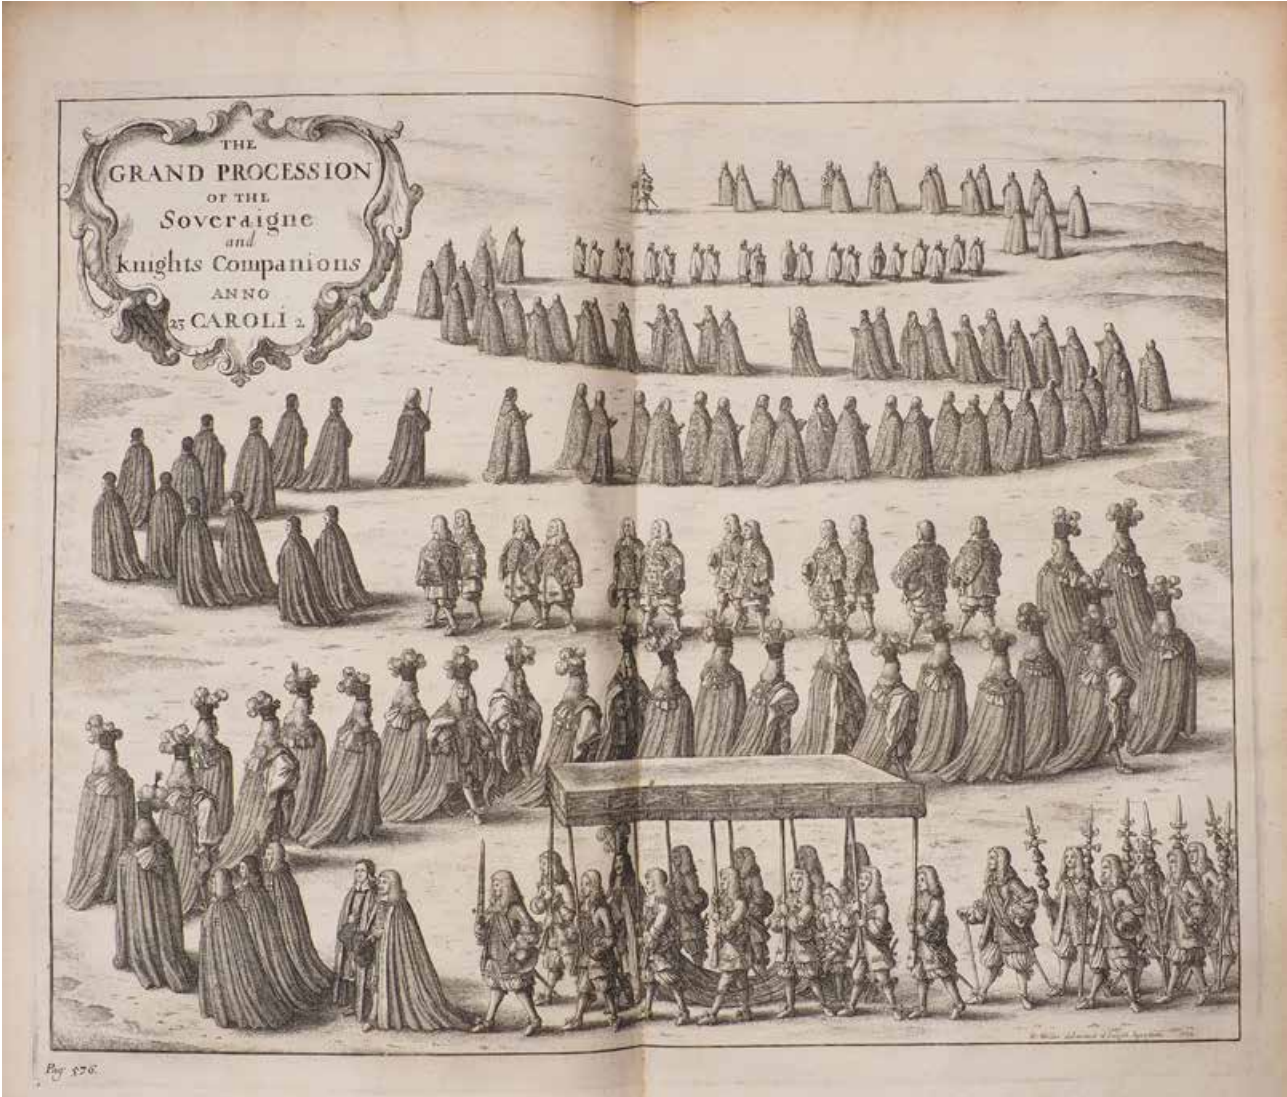 THE
GRAND PROCESSION
OF THE
Soveraigne
and
knights Companions
ANNO
23 CAROLI 2
Pag 576.